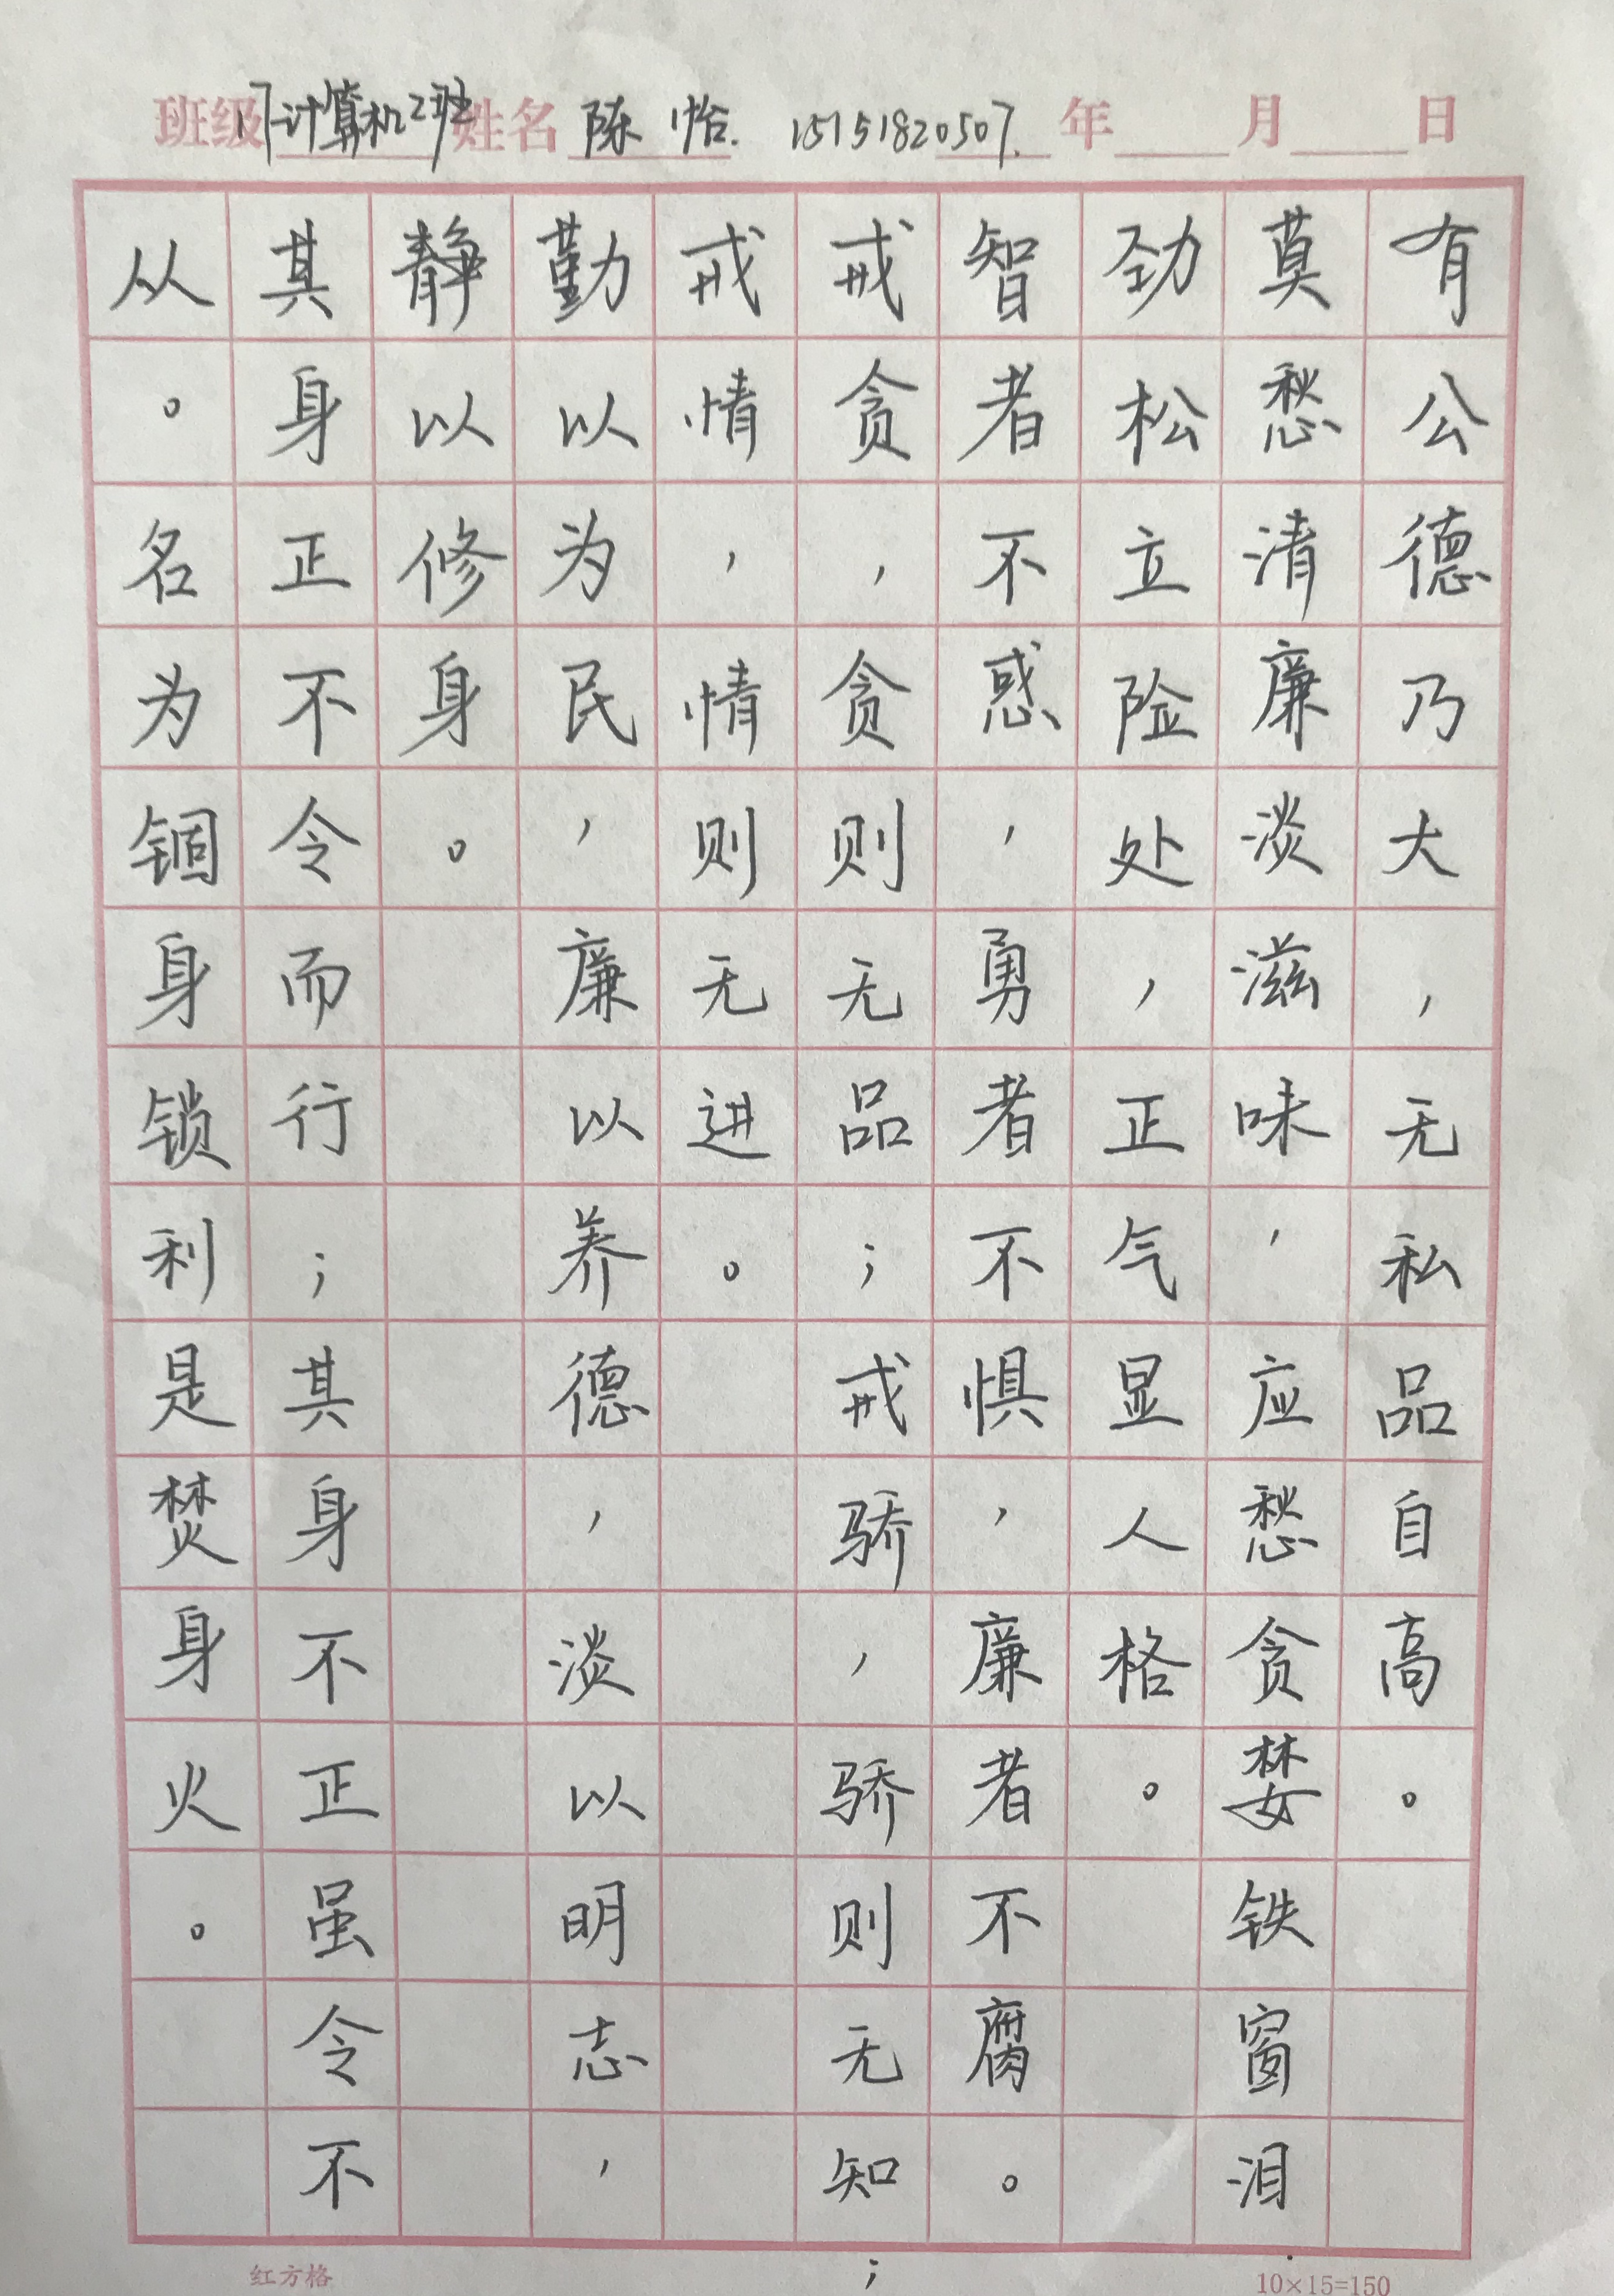 班级 17计算机2班 姓名 陈怡. 15151820507. 年 月 日
有公德乃大，无私品自高。
莫愁清廉淡滋味，应愁贪婪铁窗泪.
劲松立险处，正气显人格。
智者不惑，勇者不惧，廉者不腐。
戒贪，贪则无品；戒骄，骄则无知；
戒情，情则无进。
勤以为民，廉以养德，淡以明志，
静以修身。
其身正不令而行；其身不正虽令不
从。名为锢身锁利是焚身火。
红方格 10×15=150